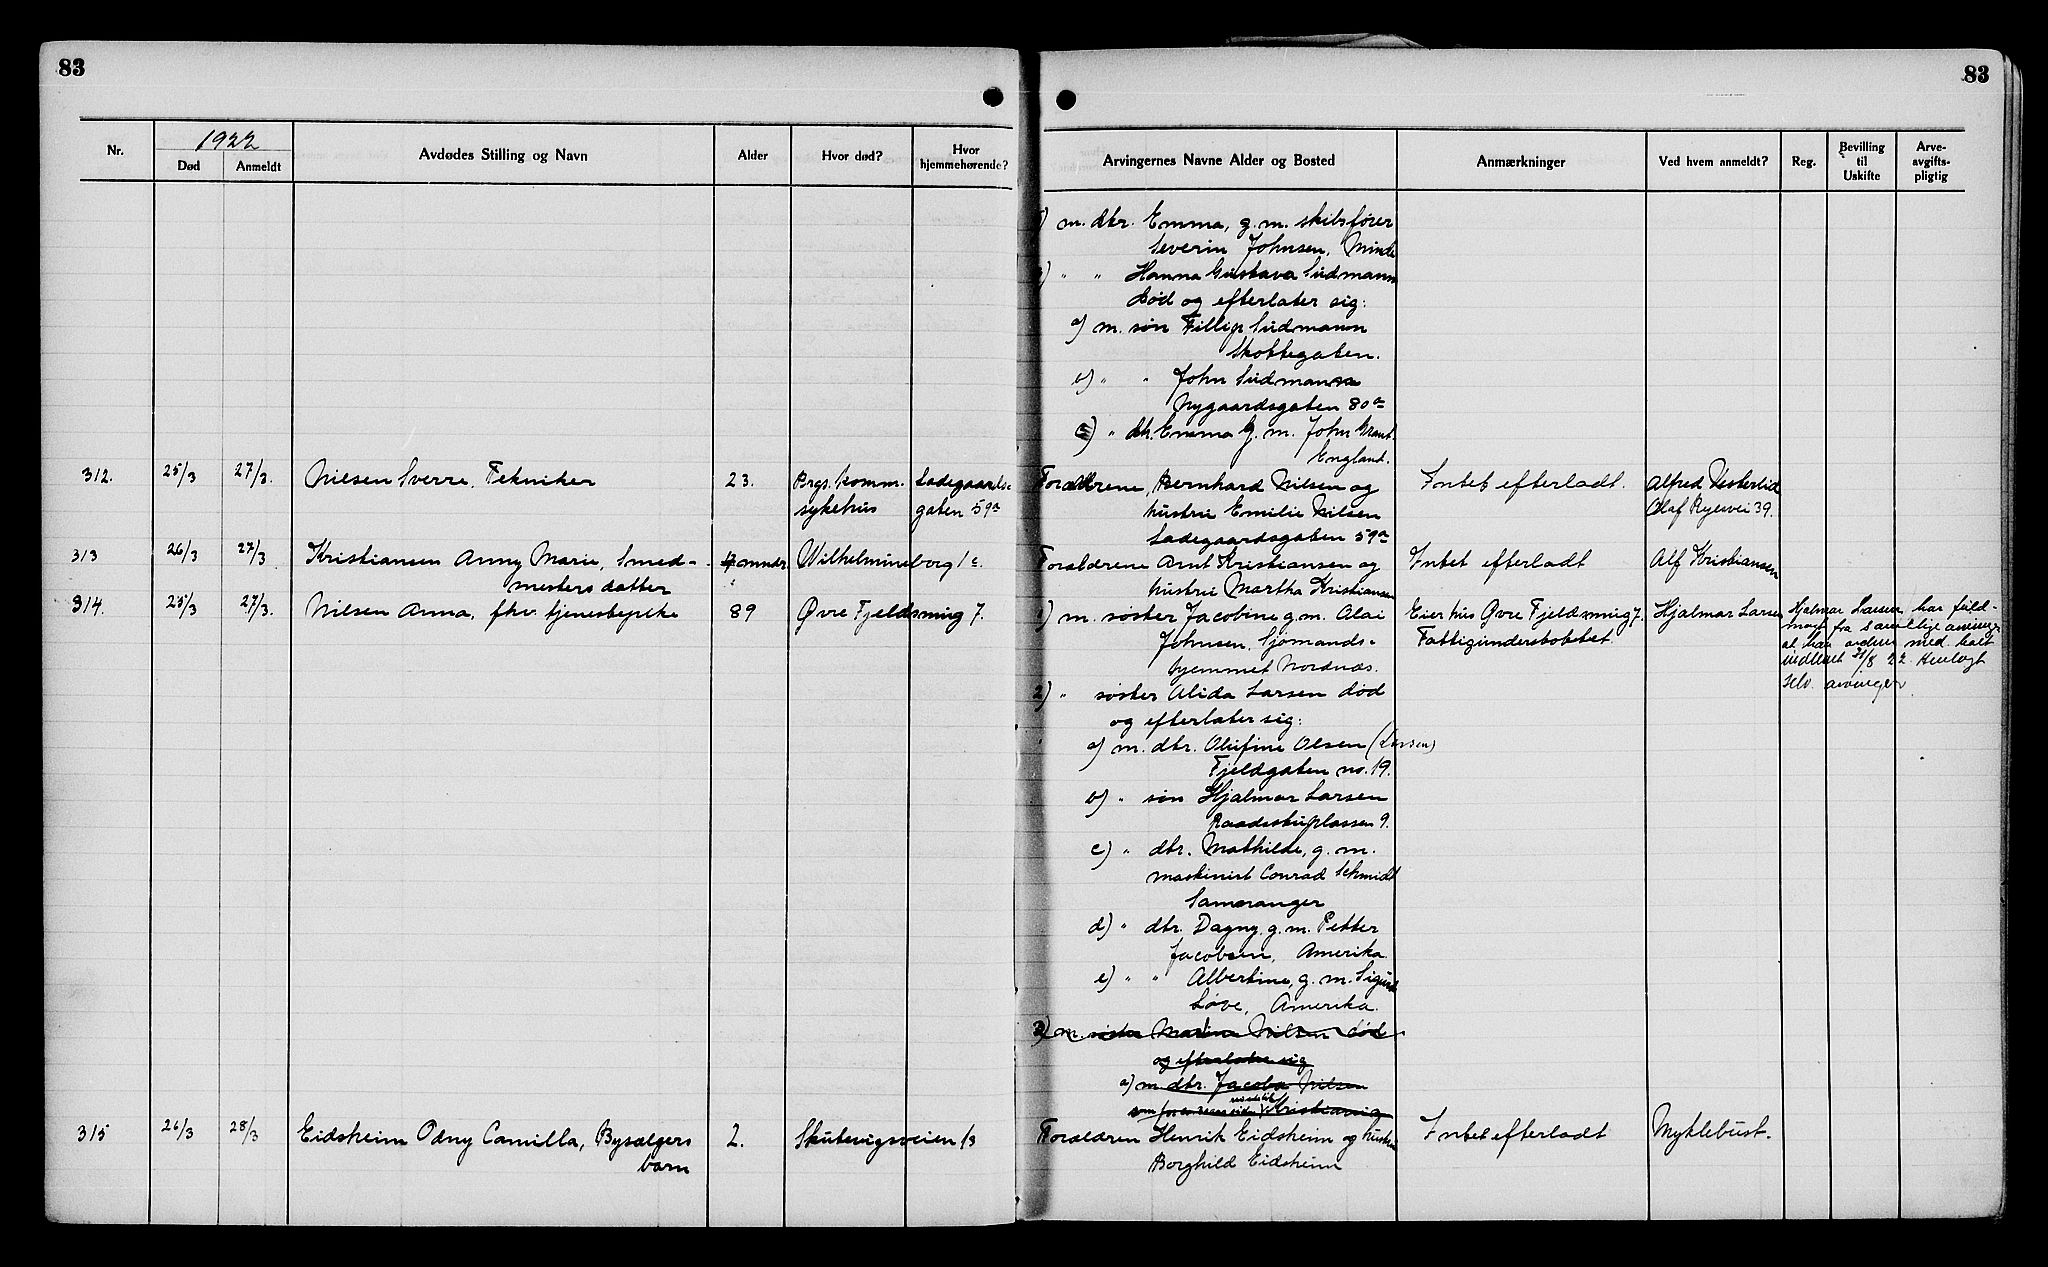 83
83
Nr.
1922
Død
Anmeldt
Avdødes Stilling og Navn
Alder
Hvor død?
Hvor hjemmehørende?
Arvingernes Navne Alder og Bosted
Anmærkninger
Ved hvem anmeldt?
Reg.
Bevilling til Uskifte
Arve-avgifts-pligtig
m. dtr. Emma, g. m. skibsfører
Severin Johnsen, Minde
" " Hanna Gustava Sudmann
død og efterlater sig:
a) m. søn Fillip Sudmann
Skottegaten.
b) " " John Sudmann
Nygaardsgaten 80a
c) " dtr. Emma g. m. John Grant
England.
312. 25/3 27/3. Nilsen Sverre, Tekniker 23. Brgs. komm. Ladegaards- Forældrene, Bernhard Nilsen og Intet efterladt. Alfred Vesterlid
sykehus gaten 59a hustru Emilie Nilsen Olaf Ryesvei 39.
Ladegaardsgaten 59a
313 26/3 27/3. Kristiansen Anny Marie, Smed- mndr. Wilhelmineborg 1c. Forældrene Arnt Kristiansen og Intet efterladt Alf Kristiansen
mesters datter hustru Martha Kristiansen
314. 25/3 27/3. Nilsen Anna, fhv. tjenestepike 89 Øvre Fjeldsmug 7. 1) m. søster Jacobine g. m. Olai Eier hus Øvre Fjeldsmug 7. Hjalmar Larsen Hjalmar Larsen har fuld-
Johnsen, Sjømands- Fattigunderstøttet. magt fra samtlige arvinger
hjemmet Nordnæs.
2) " søster Alida Larsen død arvinger
og efterlater sig:
a) m. dtr. Olufine Olsen (Larsen)
Fjeldgaten no. 19.
b) " søn Hjalmar Larsen
Raadstuplassen 9.
c) " dtr. Mathilde, g. m.
maskinist Conrad Schmidt
Samnanger
d) " dtr. Dagny g. m. Petter
Jacobsen, Amerika.
e) " " Albertine, g. m. Sigurd
Løve, Amerika.
3) m. søster Martine Nilsen død
og efterlater sig
a) m dtr. Jacoba Nilsen
Kristiania
315 26/3 28/3 Eidsheim Odny Camilla, Bysælgers 2. Skutevigsveien 13 Forældren Henrik Eidsheim og hustru Intet efterladt Myklebust.
barn Borghild Eidsheim